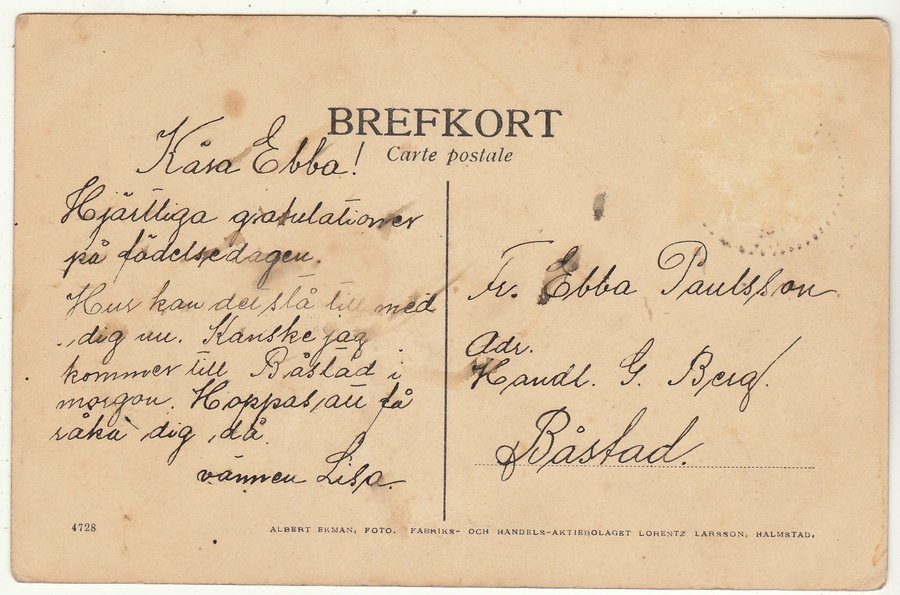 BREFKORT
Carte postale
Kära Ebba!
Hjärtliga gratulationer
på födelsedagen.
Hur kan det stå till med
dig nu. Kanske jag
kommer till Båstad i
morgon. Hoppas att få
råka dig då.
vännen Lisa.
Fr. Ebba Paulsson
Adr.
Handl. G. Berg.
Båstad.
4728
ALBERT EKMAN, FOTO. FABRIKS- OCH HANDELS-AKTIEBOLAGET LORENTZ LARSSON, HALMSTAD.